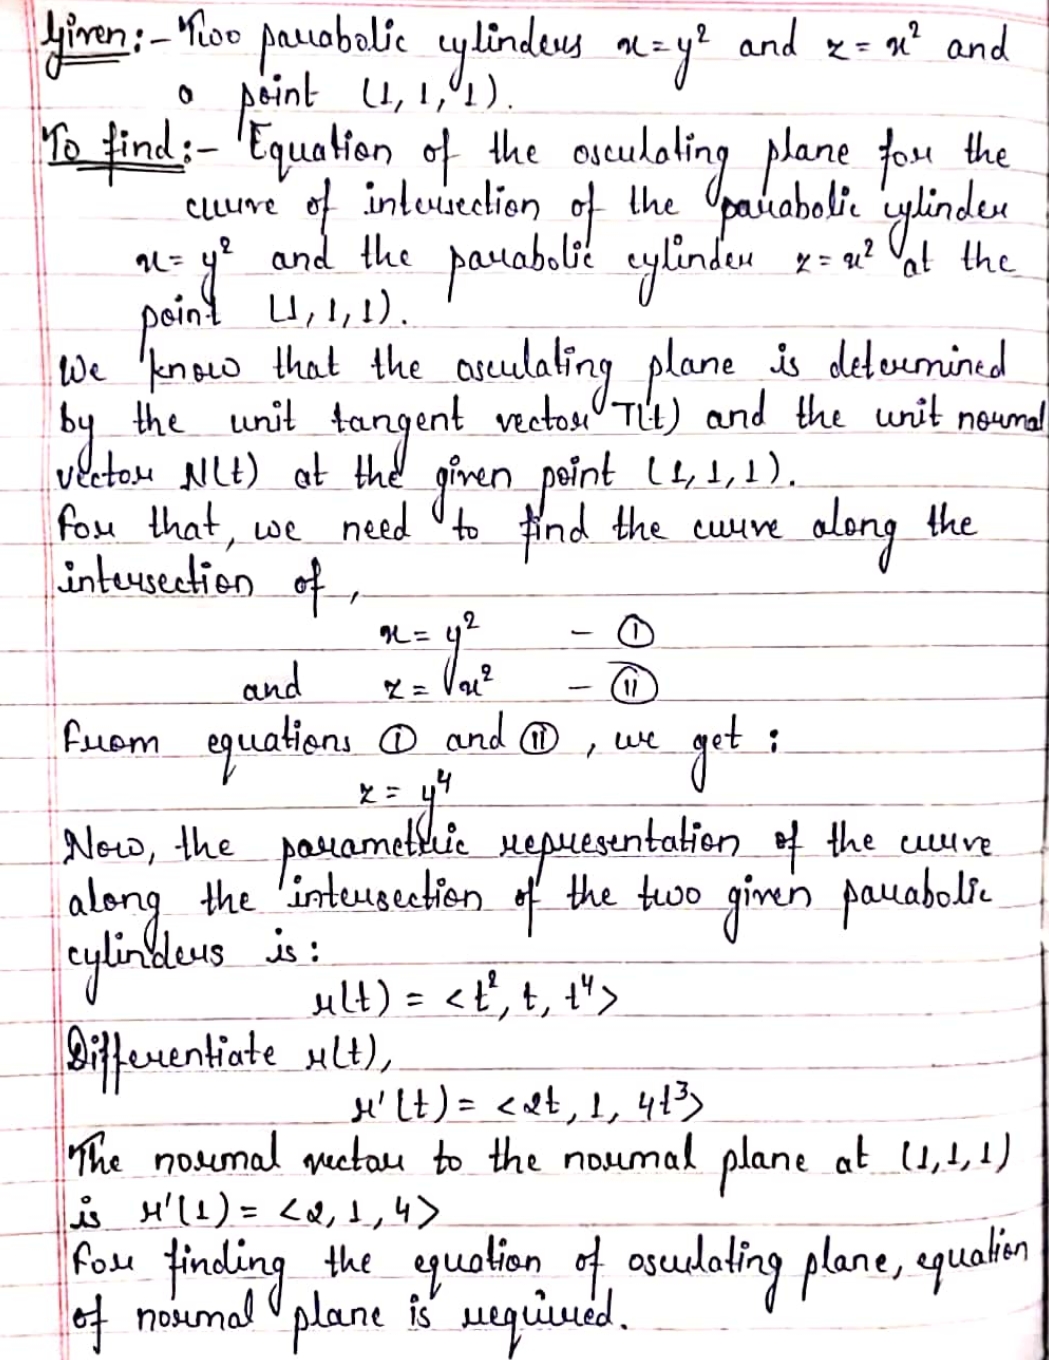 Given:- Two parabolic cylinders x=y² and z=x² and
a point (1, 1, 1).
To find:- Equation of the osculating plane for the
curve of intersection of the parabolic cylinder
x=y² and the parabolic cylinder z=x² at the
point (1, 1, 1).
We know that the osculating plane is determined
by the unit tangent vector T(t) and the unit normal
vector N(t) at the given point (1, 1, 1).
For that, we need to find the curve along the
intersection of,
x=y² - (i)
and z=x² - (ii)
From equations (i) and (ii), we get:
z=y⁴
Now, the parametric representation of the curve
along the intersection of the two given parabolic
cylinders is:
r(t) = <t², t, t⁴>
Differentiate r(t),
r'(t) = <2t, 1, 4t³>
The normal vector to the normal plane at (1,1,1)
is r'(1) = <2, 1, 4>
For finding the equation of osculating plane, equation
of normal plane is required.